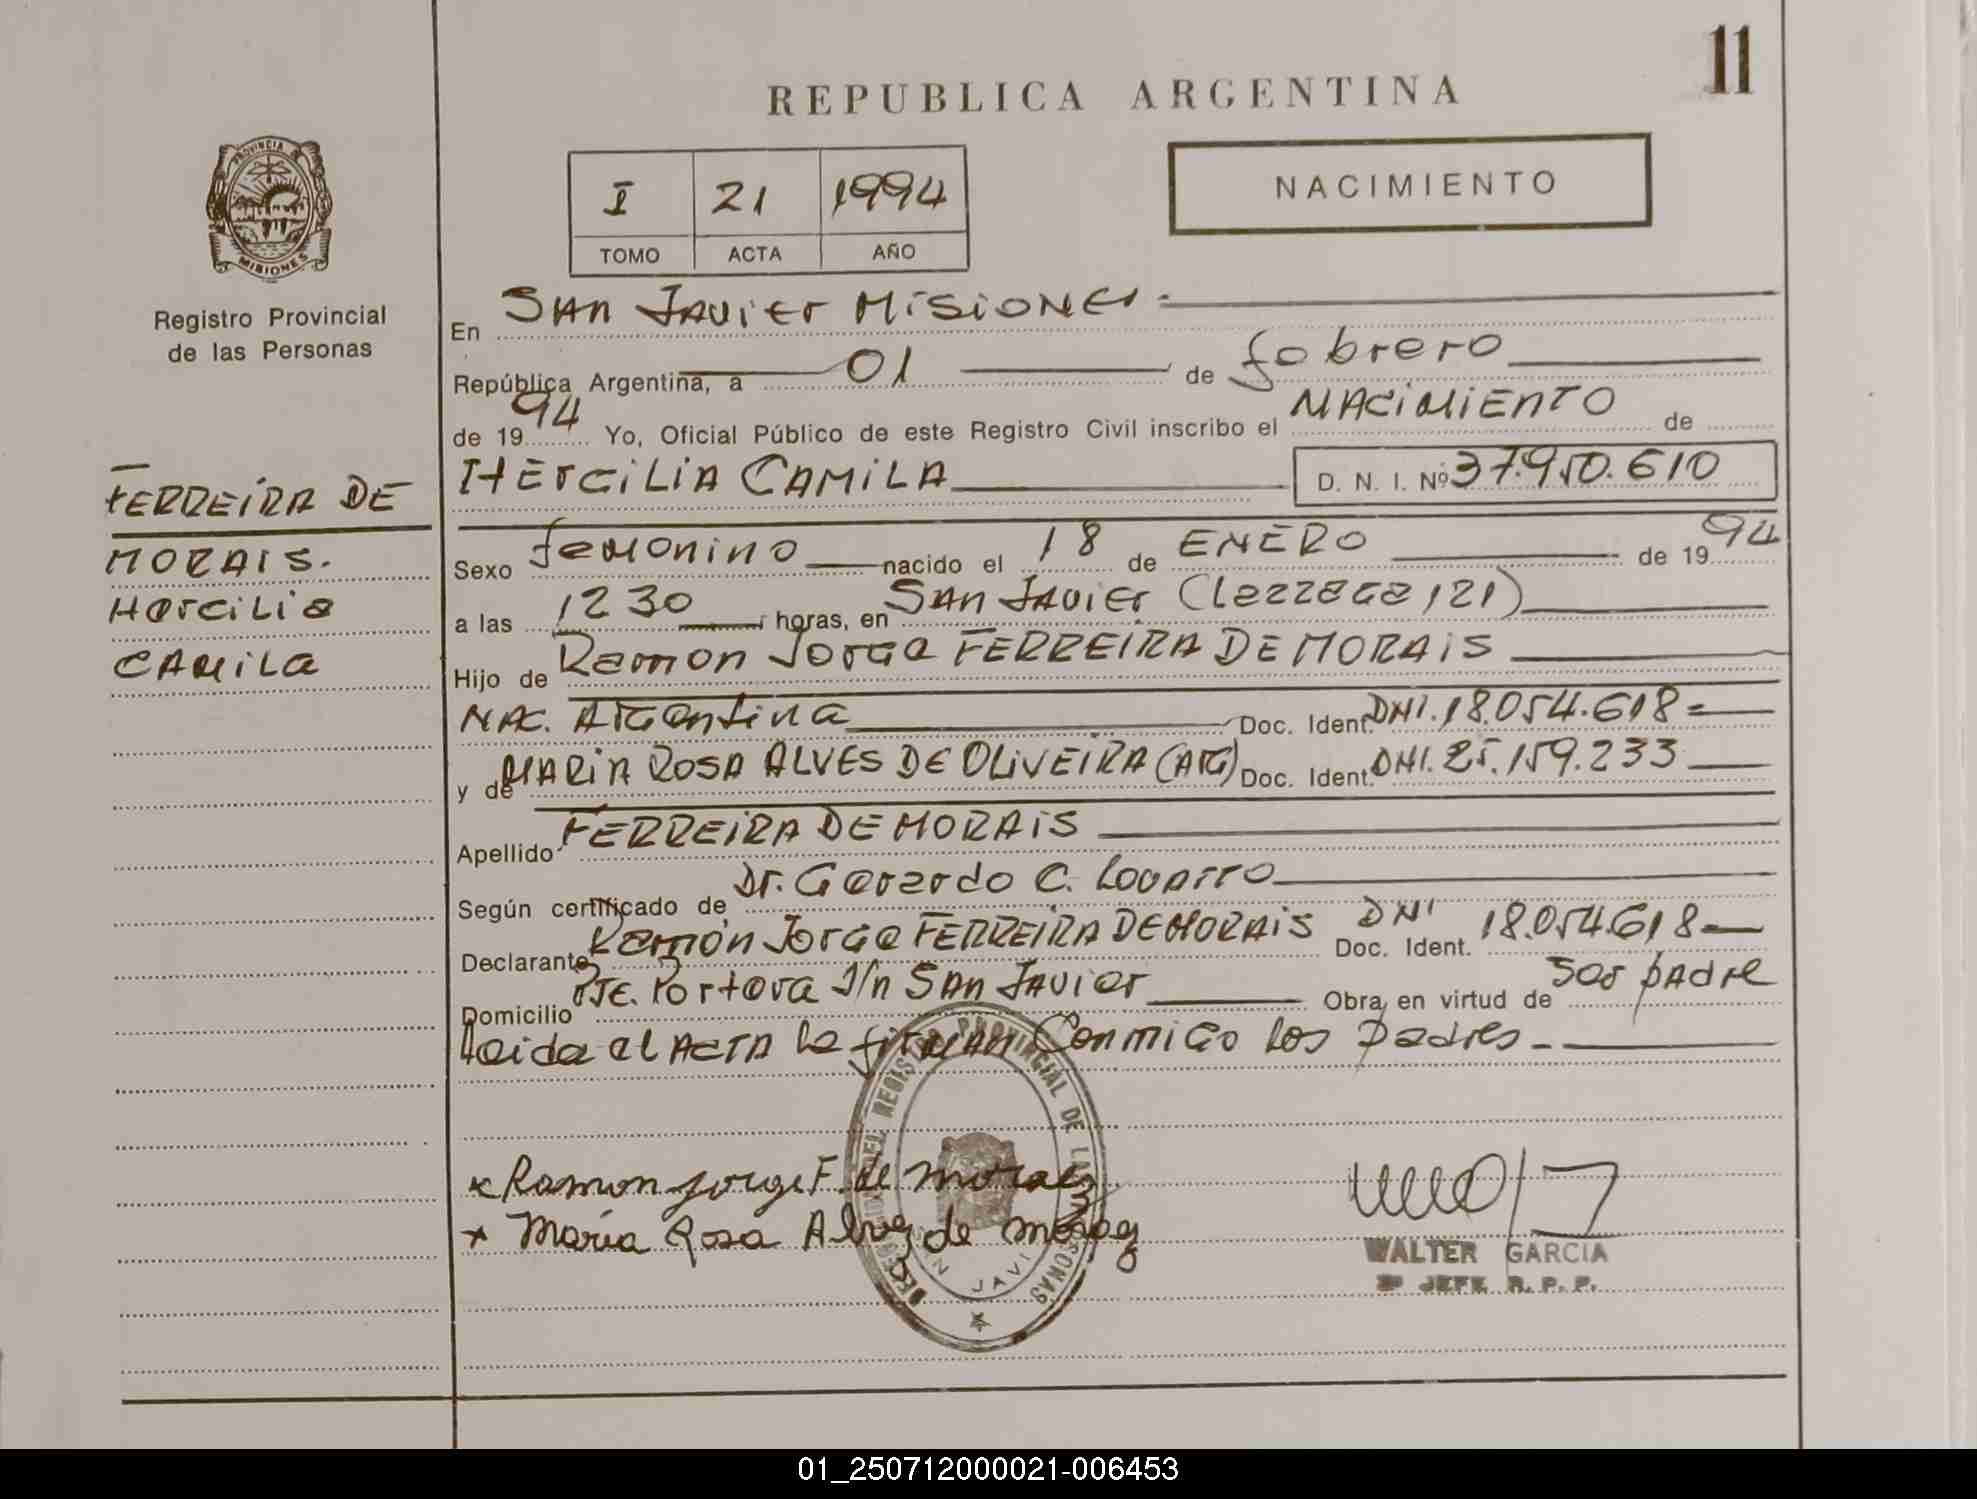 11
REPUBLICA ARGENTINA
PROVINCIA
MISIONES
Registro Provincial
de las Personas
I 21 1994
TOMO ACTA AÑO
NACIMIENTO
En SAN JAVIER MISIONES
República Argentina, a 01 de febrero
de 1994 Yo, Oficial Público de este Registro Civil inscribo el NACIMIENTO de
HERCILIA CAMILA D. N. I. Nº 37.950.610
FERREIRA DE
MORAIS.
HerciLia
CAMiLa
Sexo femenino nacido el 18 de ENERO de 1994
a las 12 30 horas, en SAN JAVIER (Lezzaga 121)
Hijo de Ramon Jorge FERREIRA DE MORAIS
NAC. Argentina Doc. Ident. DNI. 18.054.618=
y de MARIA ROSA ALVES DE OLIVEIRA (ARG) Doc. Ident. DNI. 25.159.233
Apellido FERREIRA DE MORAIS
Según certificado de Dr. Gerardo C.
Declarante Ramón Jorge FERREIRA DE MORAIS DNI Doc. Ident. 18.054.618
Domicilio PJE. Portera S/n SAN JAVIER Obra en virtud de ser padre
Leida el ACTA la firman Conmigo Los padres
Ramon Jorge F. de Moraez
Maria Rosa Alvez de Moraez
REGISTRO PROVINCIAL DE LAS PERSONAS
WALTER GARCIA
JEFE R. P. P.
01_250712000021-006453